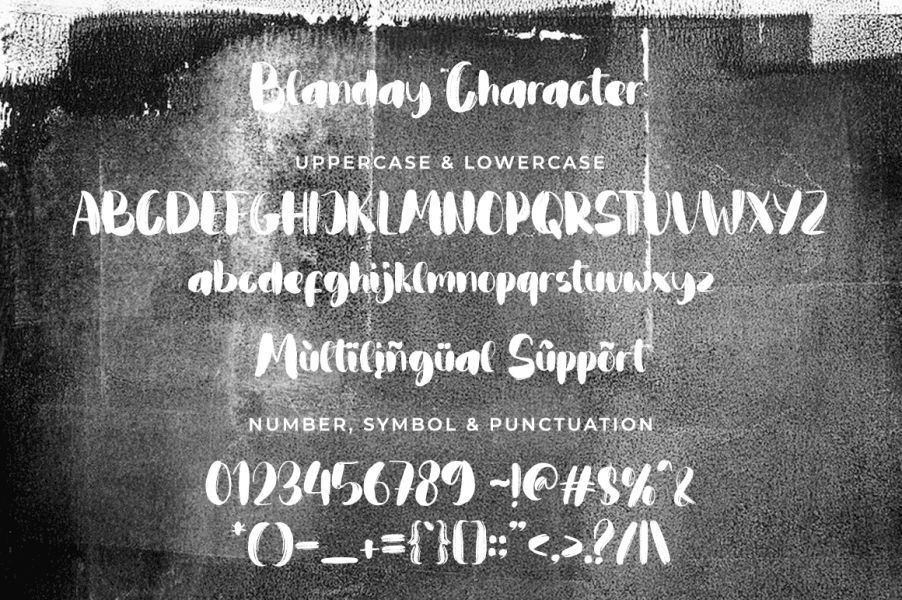 Blanday Character
UPPERCASE & LOWERCASE
ABCDEFGHIJKLMNOPQRSTUVWXYZ
abcdefghijklmnopqrstuvwxyz
Mùltïlíñgüal Sûppõrt
NUMBER, SYMBOL & PUNCTUATION
0123456789 ~!@#$%^&
*()-_+={`}[]:;"'<,>.?/|\